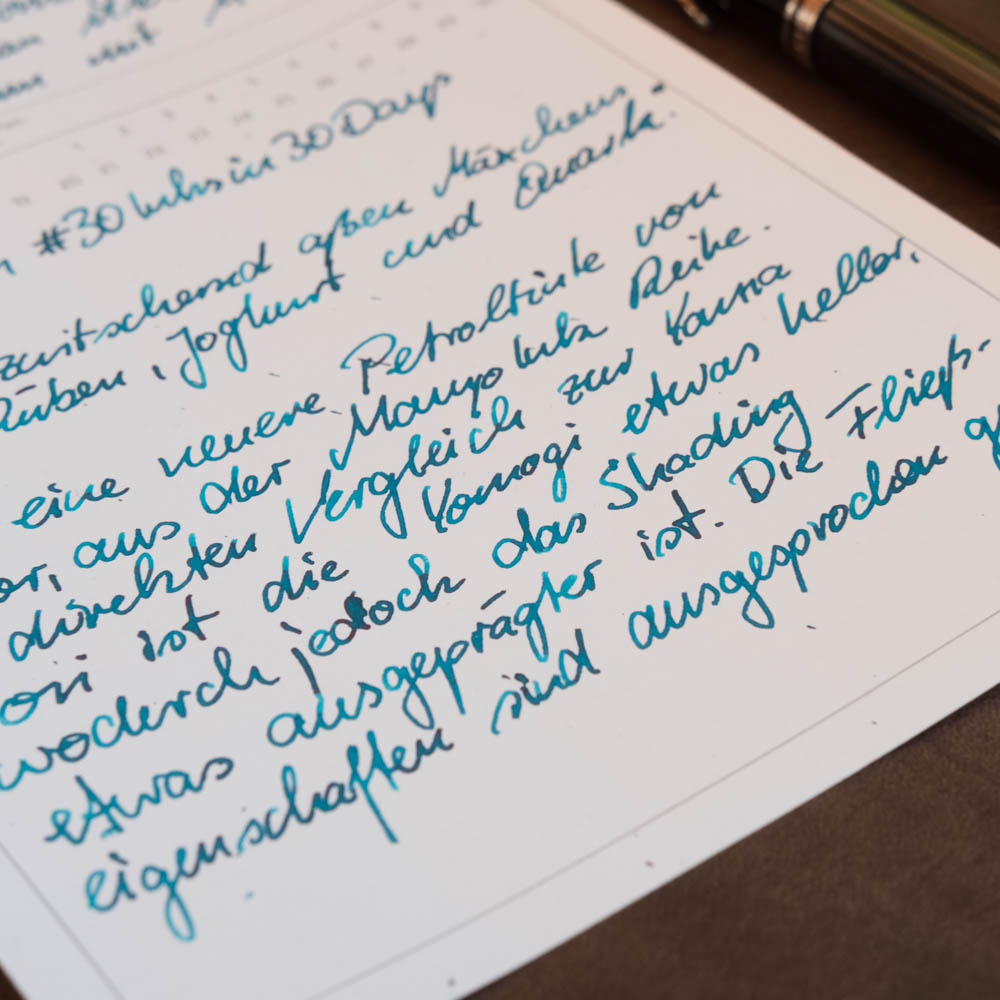 mit
#30 Inks in 30 Days
zwitschernd aßen Mäxchens
Rüben, Joghurt und Quark.
eine neuere Petroltinte von
aus der Manyo Ink Reihe.
direkten Vergleich zur Kauna
ist die Yomogi etwas heller,
wodurch jedoch das Shading
etwas ausgeprägter ist. Die Fließ-
eigenschaften sind ausgesprochen